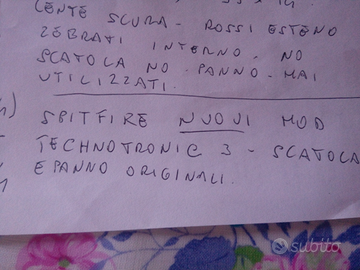 LENTE SCURA - ROSSI ESTENO
ZEBRATI INTERNO. NO
SCATOLA NO PANNO - MAI
UTILIZZATI.
SPITFIRE NUOVI MOD
TECHNOTRONIC 3 - SCATOLA
E PANNO ORIGINALI.
subito